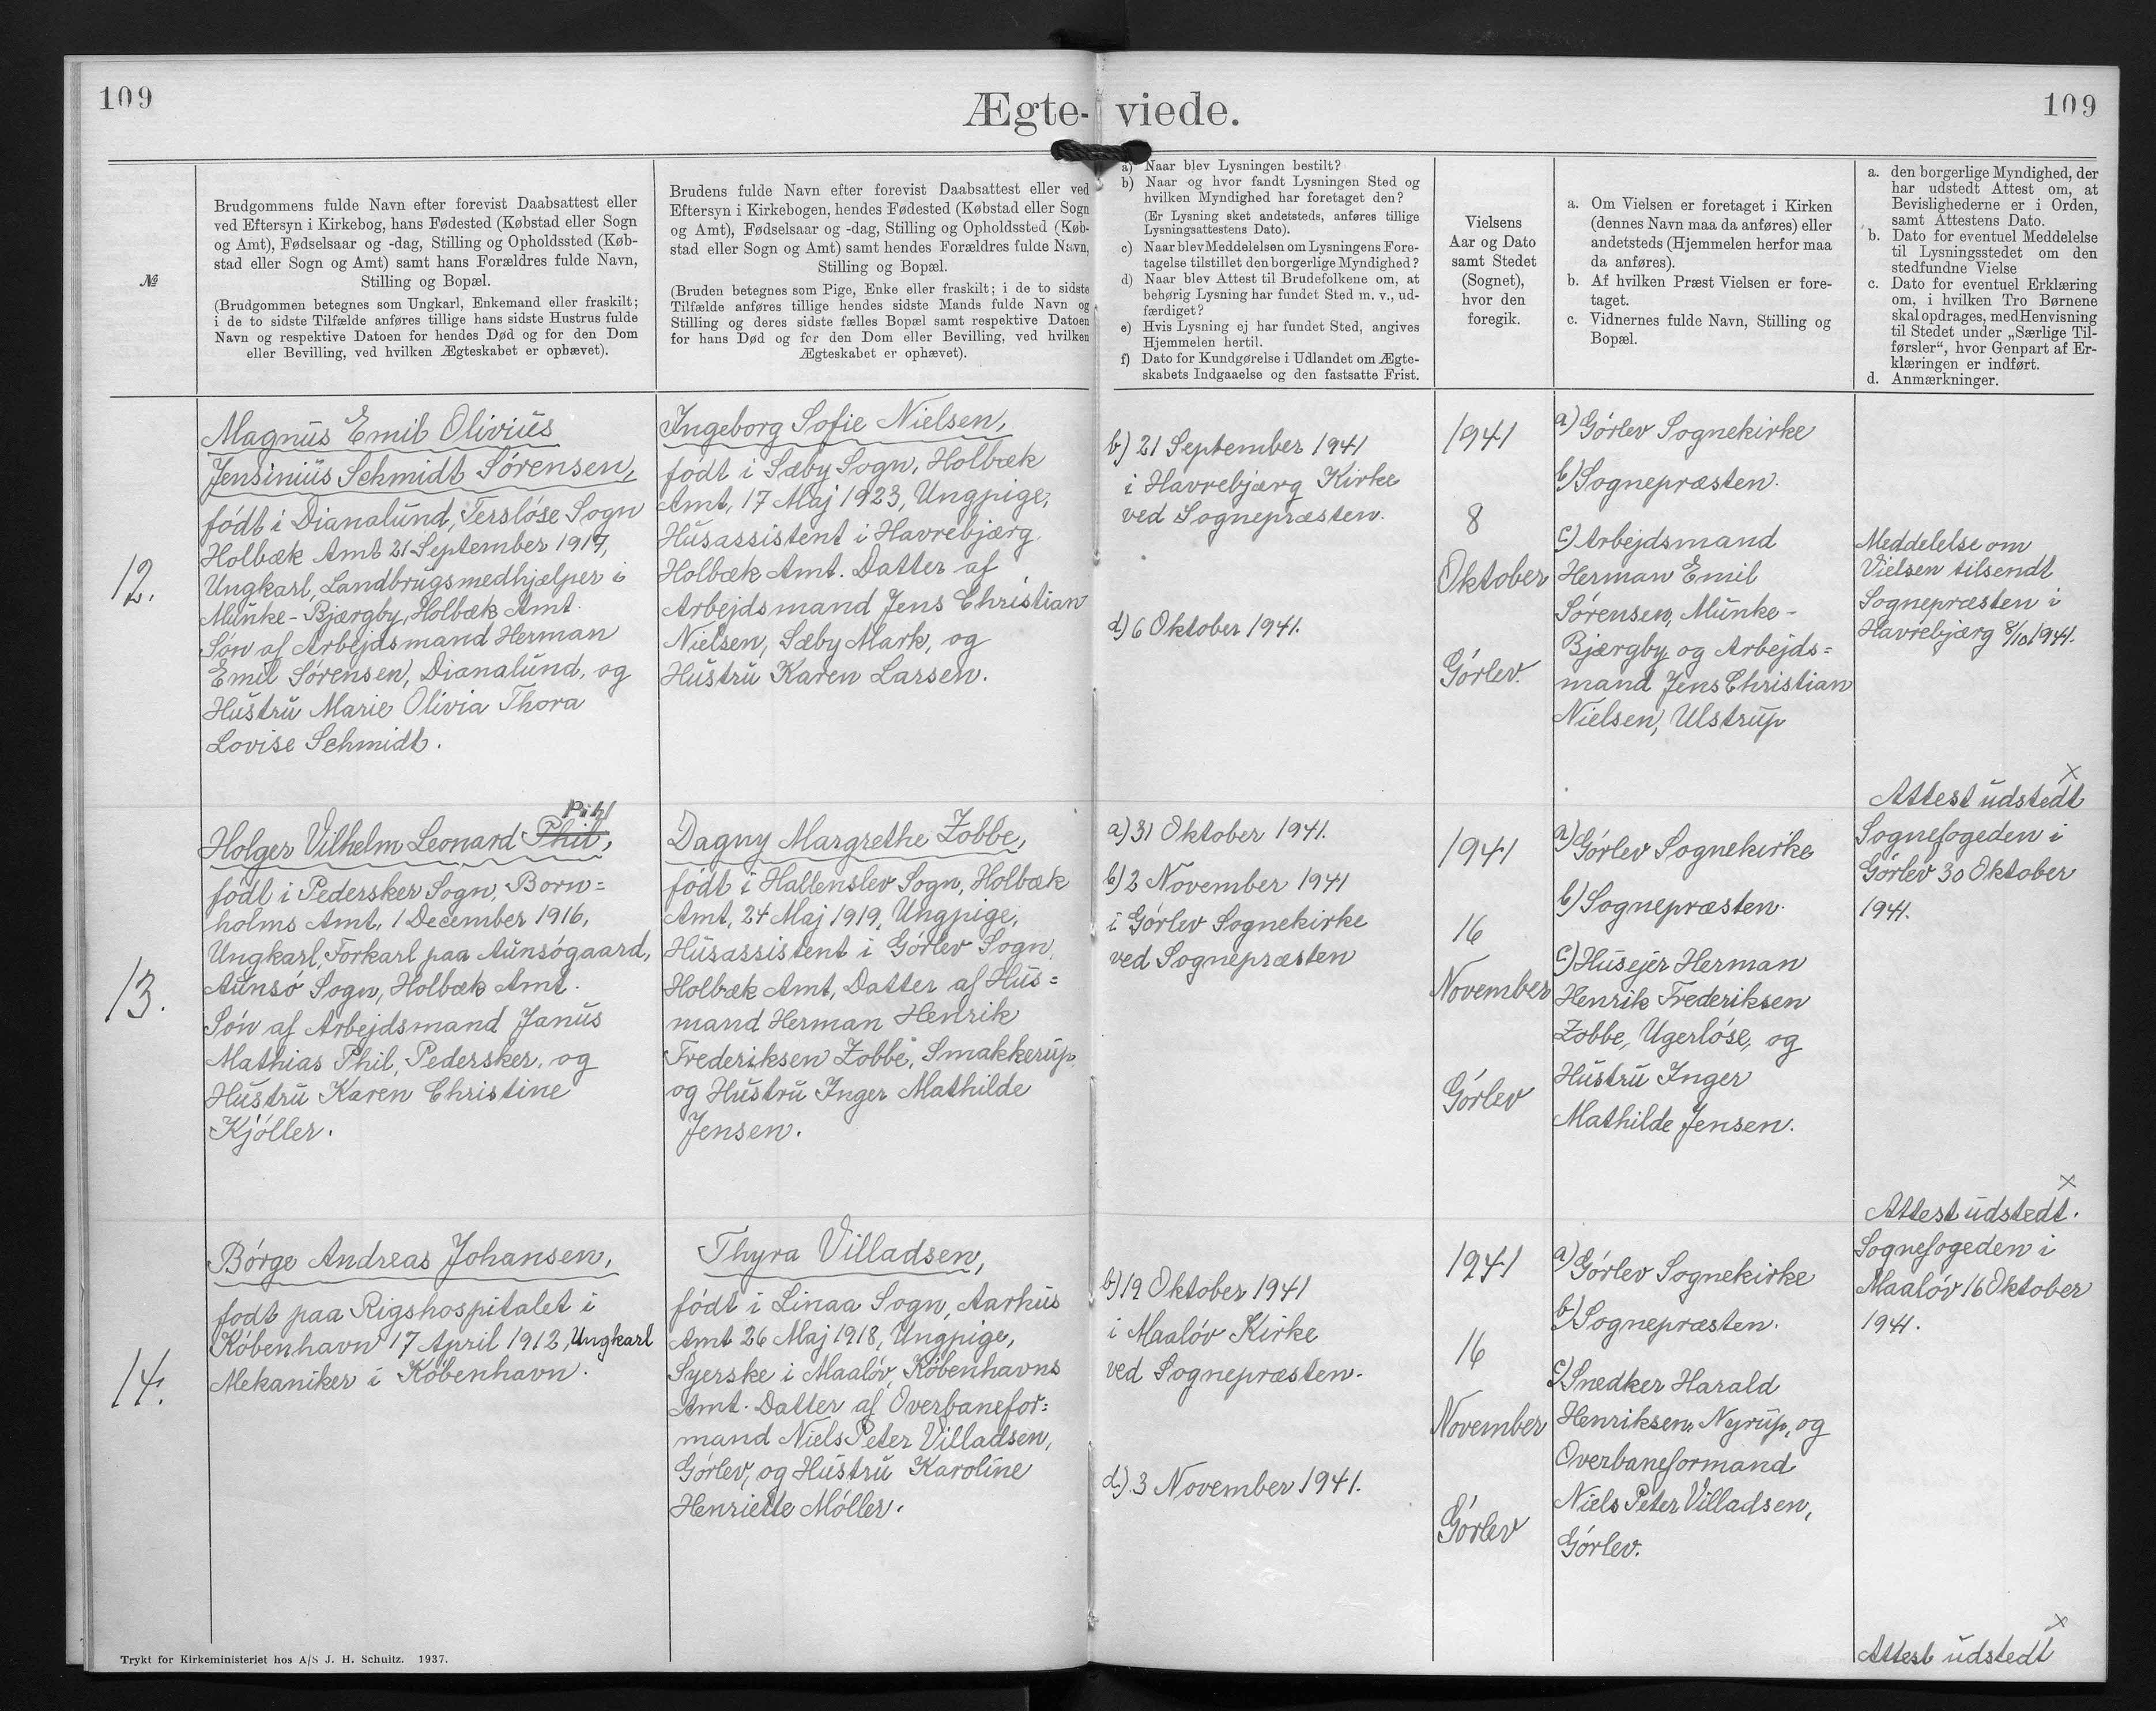 109
Ægte-viede.
109
№
Brudgommens fulde Navn efter forevist Daabsattest eller
ved Eftersyn i Kirkebog, hans Fødested (Købstad eller Sogn
og Amt), Fødselsaar og -dag, Stilling og Opholdssted (Køb-
stad eller Sogn og Amt) samt hans Forældres fulde Navn,
Stilling og Bopæl.
(Brudgommen betegnes som Ungkarl, Enkemand eller fraskilt;
i de to sidste Tilfælde anføres tillige hans sidste Hustrus fulde
Navn og respektive Datoen for hendes Død og for den Dom
eller Bevilling, ved hvilken Ægteskabet er ophævet).
Brudens fulde Navn efter forevist Daabsattest eller ved
Eftersyn i Kirkebogen, hendes Fødested (Købstad eller Sogn
og Amt), Fødselsaar og -dag, Stilling og Opholdssted (Køb-
stad eller Sogn og Amt) samt hendes Forældres fulde Navn,
Stilling og Bopæl.
(Bruden betegnes som Pige, Enke eller fraskilt; i de to sidste
Tilfælde anføres tillige hendes sidste Mands fulde Navn og
Stilling og deres sidste fælles Bopæl samt respektive Datoen
for hans Død og for den Dom eller Bevilling, ved hvilken
Ægteskabet er ophævet).
a) Naar blev Lysningen bestilt?
b) Naar og hvor fandt Lysningen Sted og
hvilken Myndighed har foretaget den?
(Er Lysning sket andetsteds, anføres tillige
Lysningsattestens Dato).
c) Naar blev Meddelelsen om Lysningens Fore-
tagelse tilstillet den borgerlige Myndighed?
d) Naar blev Attest til Brudefolkene om, at
behørig Lysning har fundet Sted m. v., ud-
færdiget?
e) Hvis Lysning ej har fundet Sted, angives
Hjemmelen hertil.
f) Dato for Kundgørelse i Udlandet om Ægte-
skabets Indgaaelse og den fastsatte Frist.
Vielsens
Aar og Dato
samt Stedet
(Sognet),
hvor den
foregik.
a. Om Vielsen er foretaget i Kirken
(dennes Navn maa da anføres) eller
andetsteds (Hjemmelen herfor maa
da anføres).
b. Af hvilken Præst Vielsen er fore-
taget.
c. Vidnernes fulde Navn, Stilling og
Bopæl.
a. den borgerlige Myndighed, der
har udstedt Attest om, at
Bevislighederne er i Orden,
samt Attestens Dato.
b. Dato for eventuel Meddelelse
til Lysningsstedet om den
stedfundne Vielse
c. Dato for eventuel Erklæring
om, i hvilken Tro Børnene
skal opdrages, med Henvisning
til Stedet under „Særlige Til-
førsler“, hvor Genpart af Er-
klæringen er indført.
d. Anmærkninger.
12.
Magnus Emil Olivius
Jensinius Schmidt Sørensen,
født i Dianalund, Tersløse Sogn
Holbæk Amt 21 September 1917,
Ungkarl, Landbrugsmedhjælper i
Munke-Bjærgby, Holbæk Amt.
Søn af Arbejdsmand Herman
Emil Sørensen, Dianalund, og
Hustru Marie Olivia Thora
Lovise Schmidt.
Ingeborg Sofie Nielsen,
født i Sæby Sogn, Holbæk
Amt, 17 Maj 1923, Ungpige,
Husassistent i Havrebjærg
Holbæk Amt. Datter af
Arbejdsmand Jens Christian
Nielsen, Sæby Mark, og
Hustru Karen Larsen.
b) 21 September 1941
i Havrebjærg Kirke
ved Sognepræsten.
d) 6 Oktober 1941.
1941
8
Oktober
Gørlev.
a) Gørlev Sognekirke
b) Sognepræsten.
c) Arbejdsmand
Herman Emil
Sørensen, Munke-
Bjærgby og Arbejds=
mand Jens Christian
Nielsen, Ulstrup
Meddelelse om
Vielsen tilsendt
Sognepræsten i
Havrebjærg 8/10 1941.
x
Attest udstedt
13.
Pihl
Holger Vilhelm Leonard Phil,
født i Pedersker Sogn, Born=
holms Amt, 1 December 1916,
Ungkarl, Forkarl paa Aunsøgaard,
Aunsø Sogn, Holbæk Amt.
Søn af Arbejdsmand Janus
Mathias Phil, Pedersker, og
Hustru Karen Christine
Kjøller.
Dagny Margrethe Zobbe,
født i Hallenslev Sogn, Holbæk
Amt, 24 Maj 1919, Ungpige,
Husassistent i Gørlev Sogn,
Holbæk Amt, Datter af Hus=
mand Herman Henrik
Frederiksen Zobbe, Smakkerup,
og Hustru Inger Mathilde
Jensen.
a) 31 Oktober 1941.
b) 2 November 1941
i Gørlev Sognekirke
ved Sognepræsten
1941
16
November
Gørlev
a) Gørlev Sognekirke
b) Sognepræsten.
c) Husejer Herman
Henrik Frederiksen
Zobbe, Ugerløse, og
Hustru Inger
Mathilde Jensen.
Sognefogeden i
Gørlev 30 Oktober
1941.
x
Attest udstedt.
14.
Børge Andreas Johansen,
født paa Rigshospitalet i
København 17 April 1912, Ungkarl
Mekaniker i København.
Thyra Villadsen,
født i Linaa Sogn, Aarhus
Amt 26 Maj 1918, Ungpige,
Syerske i Maaløv, Københavns
Amt. Datter af Overbanefor=
mand Niels Peter Villadsen,
Gørlev, og Hustru Karoline
Henriette Møller.
b) 19 Oktober 1941
i Maaløv Kirke
ved Sognepræsten.
d.) 3 November 1941.
1941
16
November
Gørlev
a) Gørlev Sognekirke
b) Sognepræsten.
c) Snedker Harald
Henriksen, Nyrup, og
Overbaneformand
Niels Peter Villadsen,
Gørlev.
Sognefogeden i
Maaløv 16 Oktober
1941.
x
Attest udstedt
Trykt for Kirkeministeriet hos A/S J. H. Schultz. 1937.